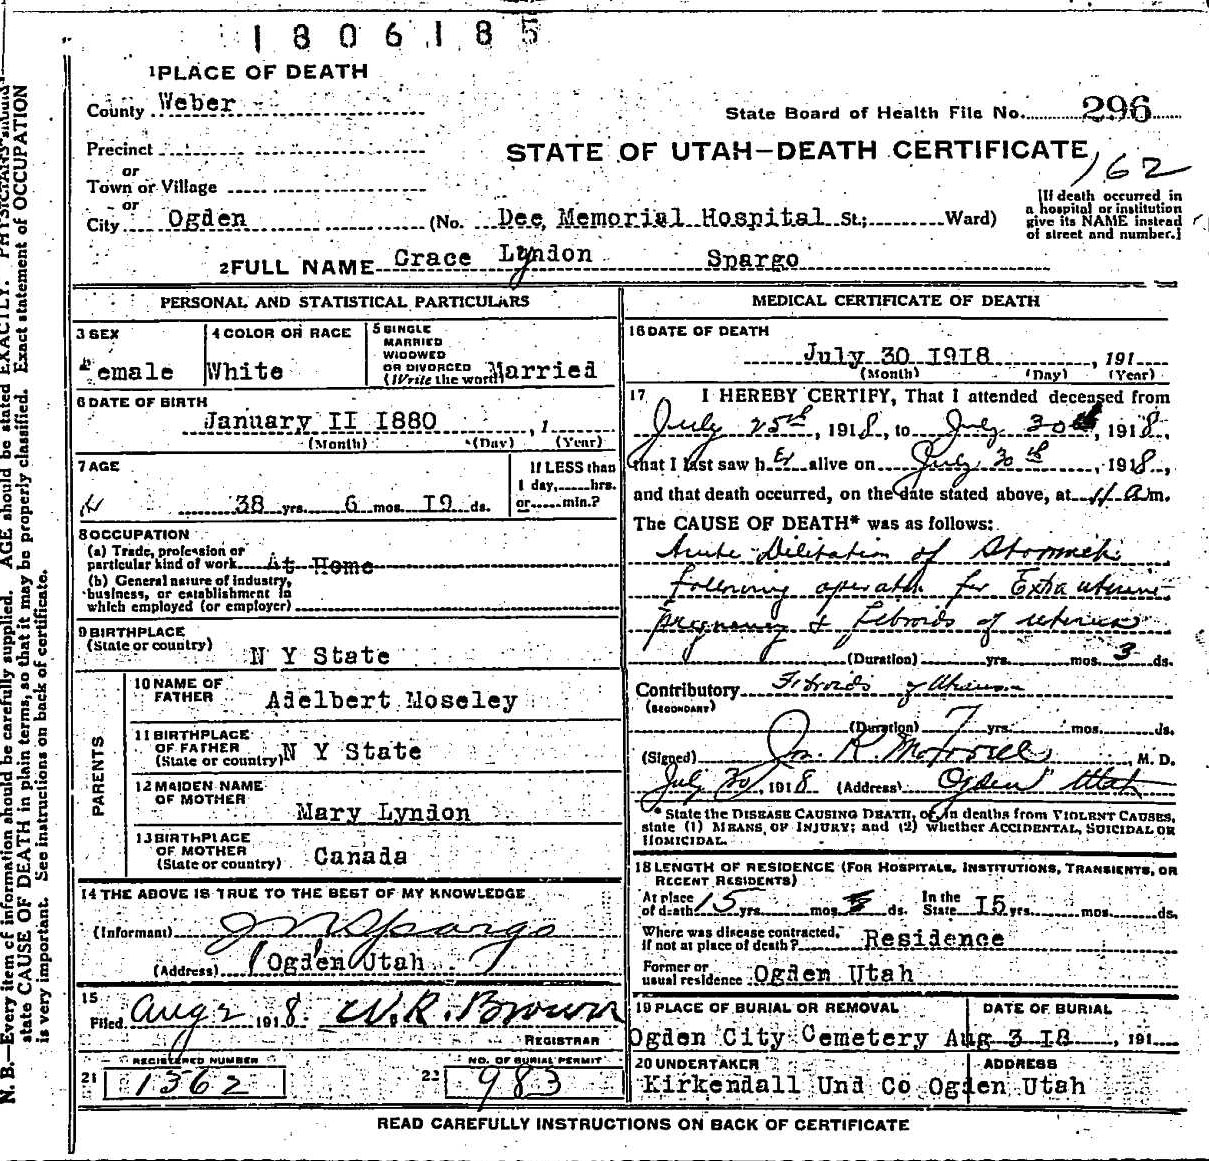 1806185
1 PLACE OF DEATH
County Weber
State Board of Health File No. 296
Precinct
STATE OF UTAH—DEATH CERTIFICATE
162
or
Town or Village
or
City Ogden (No. Dee Memorial Hospital St.; Ward)
[If death occurred in
a hospital or institution
give its NAME instead
of street and number.]
2 FULL NAME Grace Lyndon Spargo
PERSONAL AND STATISTICAL PARTICULARS
3 SEX
Female
4 COLOR OR RACE
White
5 SINGLE
MARRIED
WIDOWED
OR DIVORCED
(Write the word) Married
6 DATE OF BIRTH
January II I880 , 1
(Month) (Day) (Year)
7 AGE
38 yrs. 6 mos. I9 ds.
If LESS than
1 day, hrs.
or min.?
8 OCCUPATION
(a) Trade, profession or
particular kind of work At Home
(b) General nature of industry,
business, or establishment in
which employed (or employer)
9 BIRTHPLACE
(State or country)
N Y State
PARENTS
10 NAME OF
FATHER
Adelbert Moseley
11 BIRTHPLACE
OF FATHER
(State or country) N Y State
12 MAIDEN NAME
OF MOTHER
Mary Lyndon
13 BIRTHPLACE
OF MOTHER
(State or country) Canada
14 THE ABOVE IS TRUE TO THE BEST OF MY KNOWLEDGE
(Informant) J M Spargo
(Address) Ogden Utah
15
Filed Aug 2 1918. W. R. Brown
REGISTRAR
REGISTERED NUMBER
21 1362
NO. OF BURIAL PERMIT
22 983
MEDICAL CERTIFICATE OF DEATH
16 DATE OF DEATH
July 30 I9I8 , 191
(Month) (Day) (Year)
17 I HEREBY CERTIFY, That I attended deceased from
July 25th, 1918, to July 30th, 1918,
that I last saw her alive on July 30th, 1918,
and that death occurred, on the date stated above, at 11 a.m.
The CAUSE OF DEATH* was as follows:
Acute Dilitation of Stomach
following operation for Extra uterine
pregnancy & Febroids of uterus
(Duration) yrs. mos. 3 ds.
Contributory Fibroids of Uterus
(SECONDARY)
(Duration) 7 yrs. mos. ds.
(Signed) , M. D.
July 30, 1918 (Address) Ogden Utah
* State the DISEASE CAUSING DEATH, or, in deaths from VIOLENT CAUSES,
state (1) MEANS OF INJURY; and (2) whether ACCIDENTAL, SUICIDAL OR
HOMICIDAL.
18 LENGTH OF RESIDENCE (FOR HOSPITALS, INSTITUTIONS, TRANSIENTS, OR
RECENT RESIDENTS)
At place
of death 15 yrs. mos. ds. In the
State I5 yrs. mos. ds.
Where was disease contracted,
if not at place of death? Residence
Former or
usual residence Ogden Utah
19 PLACE OF BURIAL OR REMOVAL
Ogden City Cemetery
DATE OF BURIAL
Aug 3 I8 , 191
20 UNDERTAKER
Kirkendall Und Co
ADDRESS
Ogden Utah
READ CAREFULLY INSTRUCTIONS ON BACK OF CERTIFICATE
N. B.—Every item of information should be carefully supplied. AGE should be stated EXACTLY. PHYSICIANS should
state CAUSE OF DEATH in plain terms, so that it may be properly classified. Exact statement of OCCUPATION
is very important. See instructions on back of certificate.